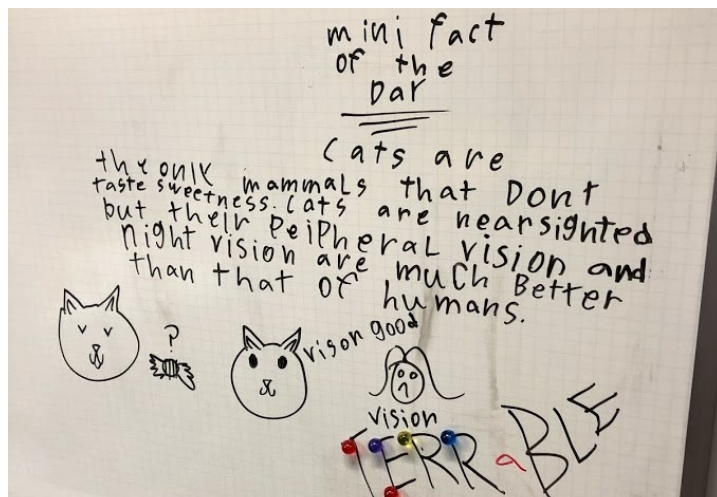 mini fact
of the
Day
Cats are
the only mammals that Dont
taste sweetness. Cats are nearsighted
but their PeiPheral vision and
night vision are much Better
than that of humans.
?
vison good
vision
TERRaBLE